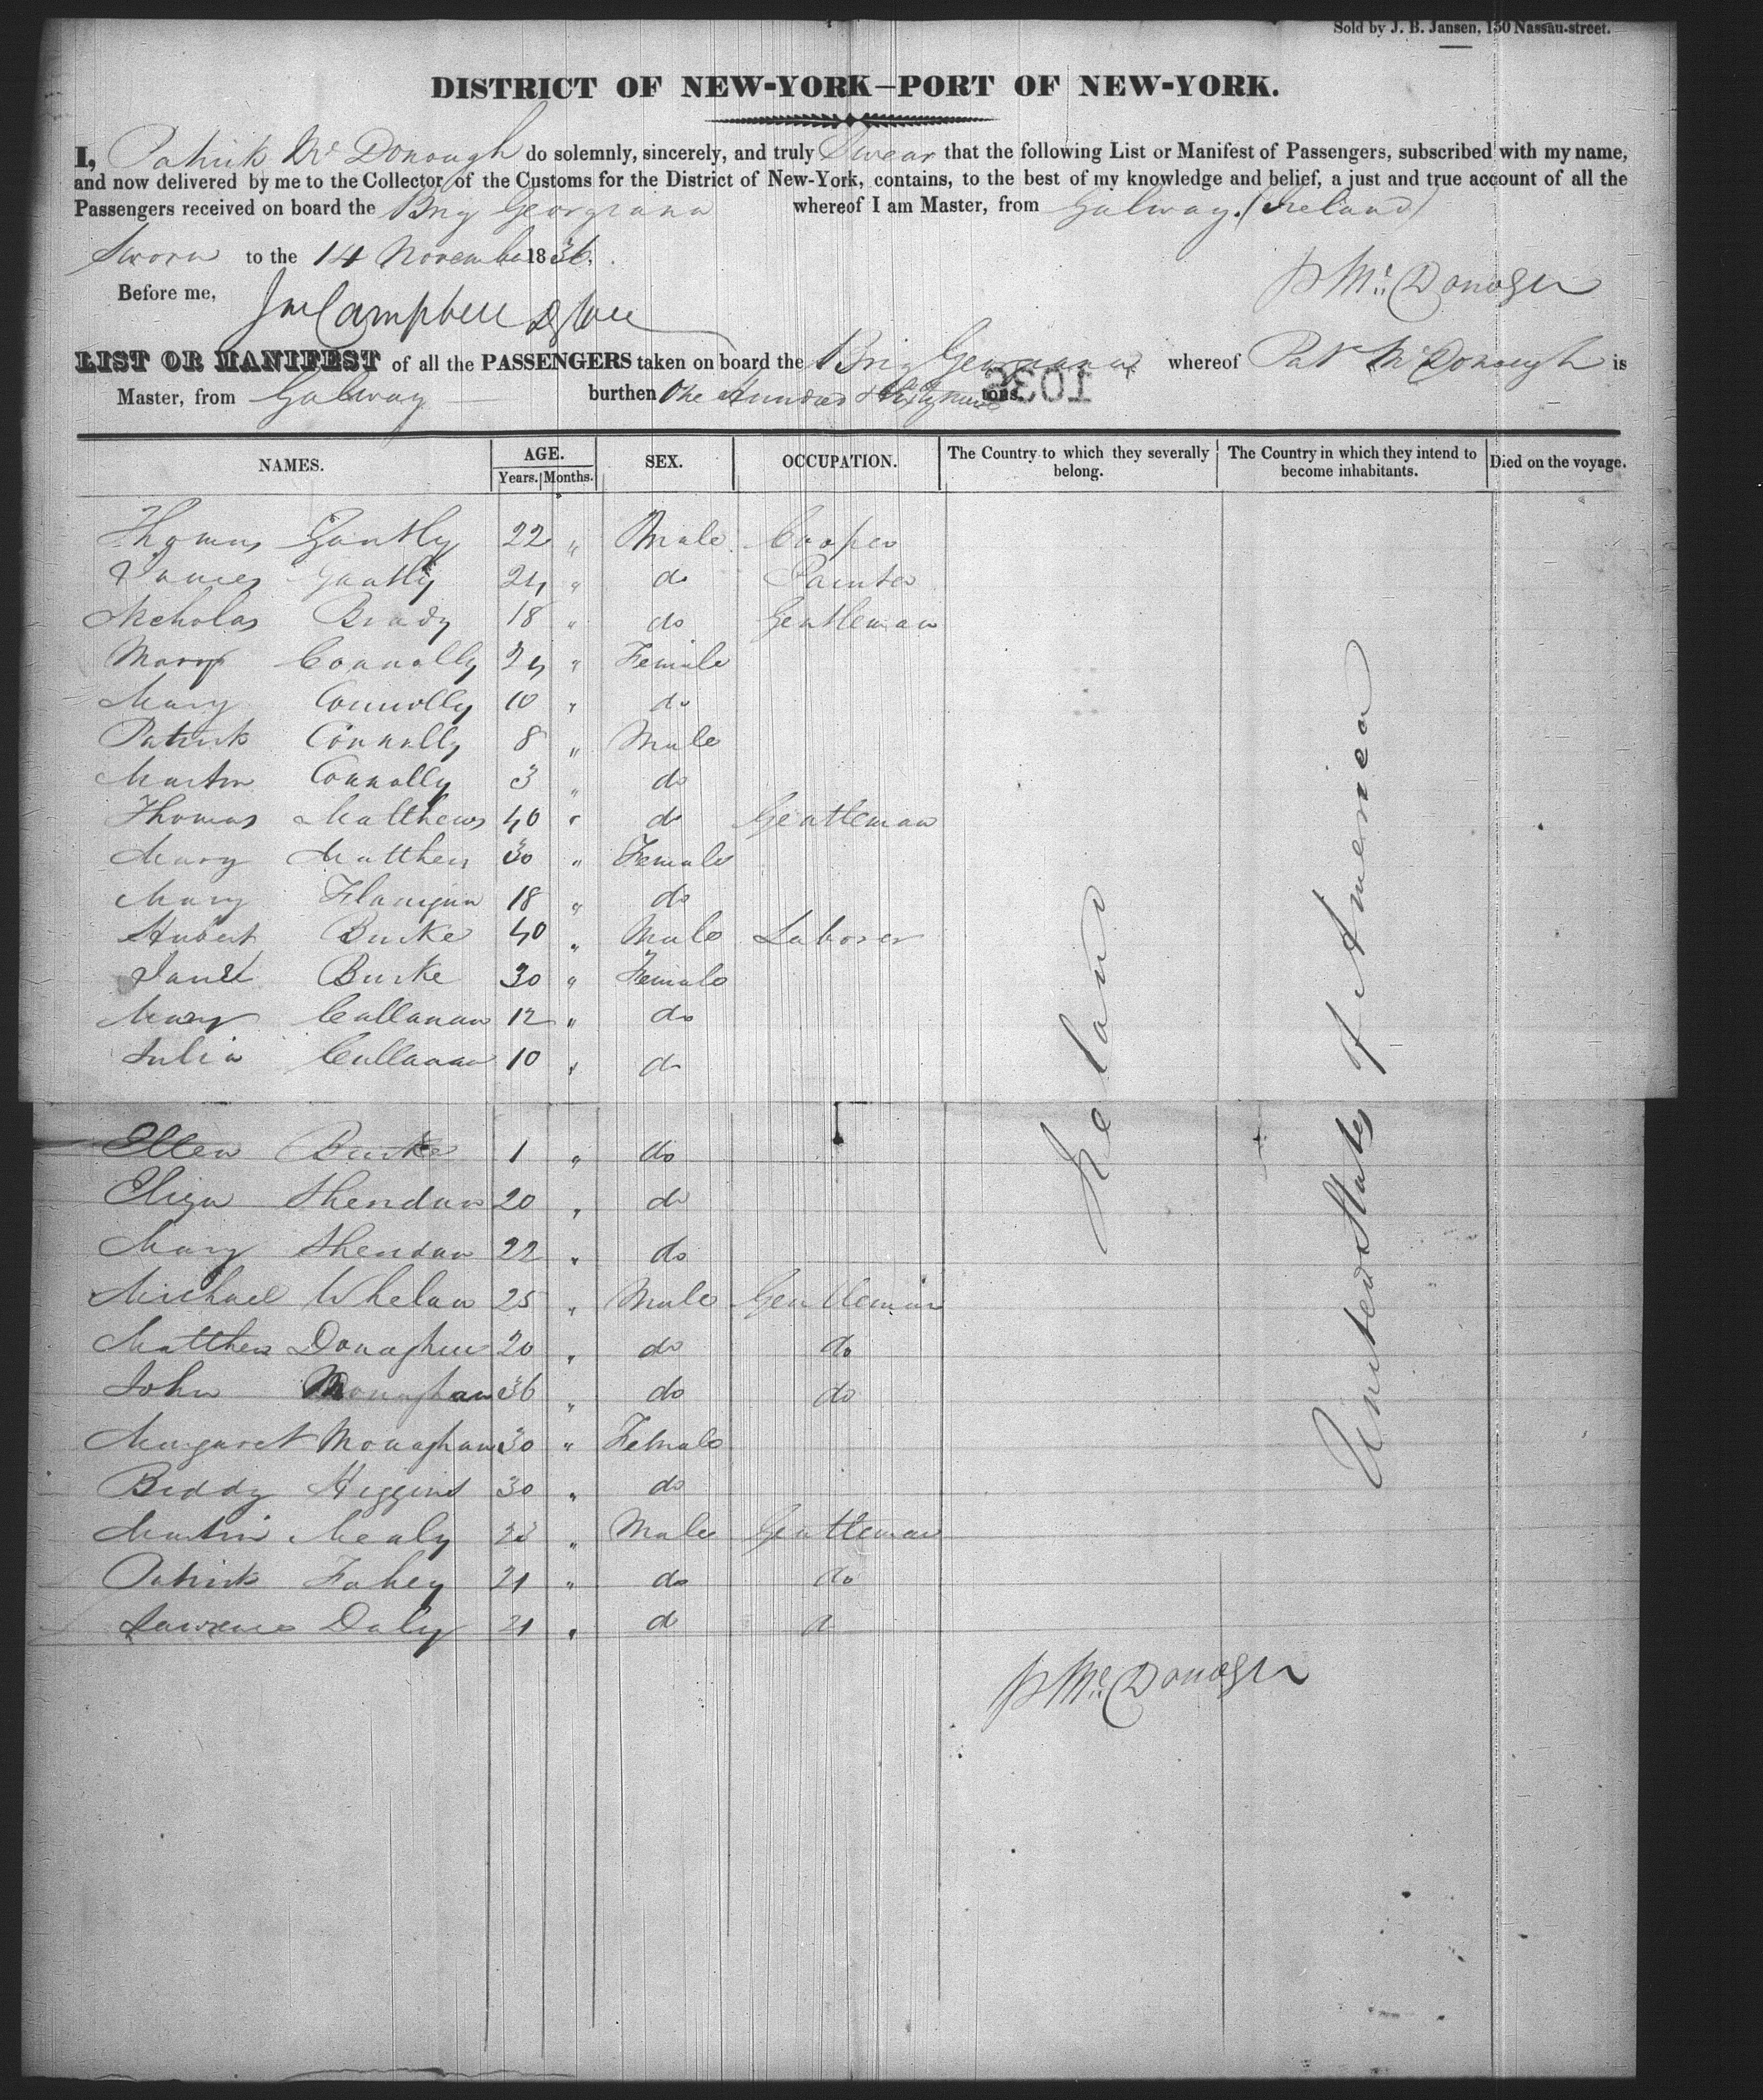 Sold by J. B. Jansen, 150 Nassau-street.
DISTRICT OF NEW-YORK—PORT OF NEW-YORK.
I, Patrick McDonough do solemnly, sincerely, and truly Swear that the following List or Manifest of Passengers, subscribed with my name,
and now delivered by me to the Collector of the Customs for the District of New-York, contains, to the best of my knowledge and belief, a just and true account of all the
Passengers received on board the Brig Georgiana whereof I am Master, from Galway (Ireland)
Sworn to the 14 November 1836.
P McDonogh
Before me,
Campbell
LIST OR MANIFEST of all the PASSENGERS taken on board the Brig Georgiana whereof Pat McDonough is
Master, from Galway burthen One Hundred & nine tons.
1036
NAMES. AGE. SEX. OCCUPATION. The Country to which they severally belong. The Country in which they intend to become inhabitants. Died on the voyage.
Years. Months.
Thomas Gantly 22 " Male Cooper
James Gantly 24 " do Painter
Nicholas Brady 18 " do Gentleman
Mary Connolly 24 " Female
Mary Connolly 10 " do
Patrick Connolly 8 " Male
Martin Connolly 3 " do
Thomas Matthews 40 " do Gentleman
Mary Matthews 30 " Female
Mary Flanigan 18 " do
Hubert Burke 40 " Male Laborer
Burke 30 " Female
Mary Callanan 12 " do
Julia Callanan 10 " do
Ellen Burke 1 " do
Eliza Sheridan 20 " do
Mary Sheridan 22 " do
Michael Whelan 25 " Male Gentleman
Matthew Donaghue 20 " do do
John Monaghan 36 " do do
Margaret Monaghan 30 " Female
Biddy Higgins 30 " do
Martin Mealy 23 " Male Gentleman
Patrick Fahey 21 " do do
Lawrence Daly 21 " do do
Ireland
United States of America
P McDonogh